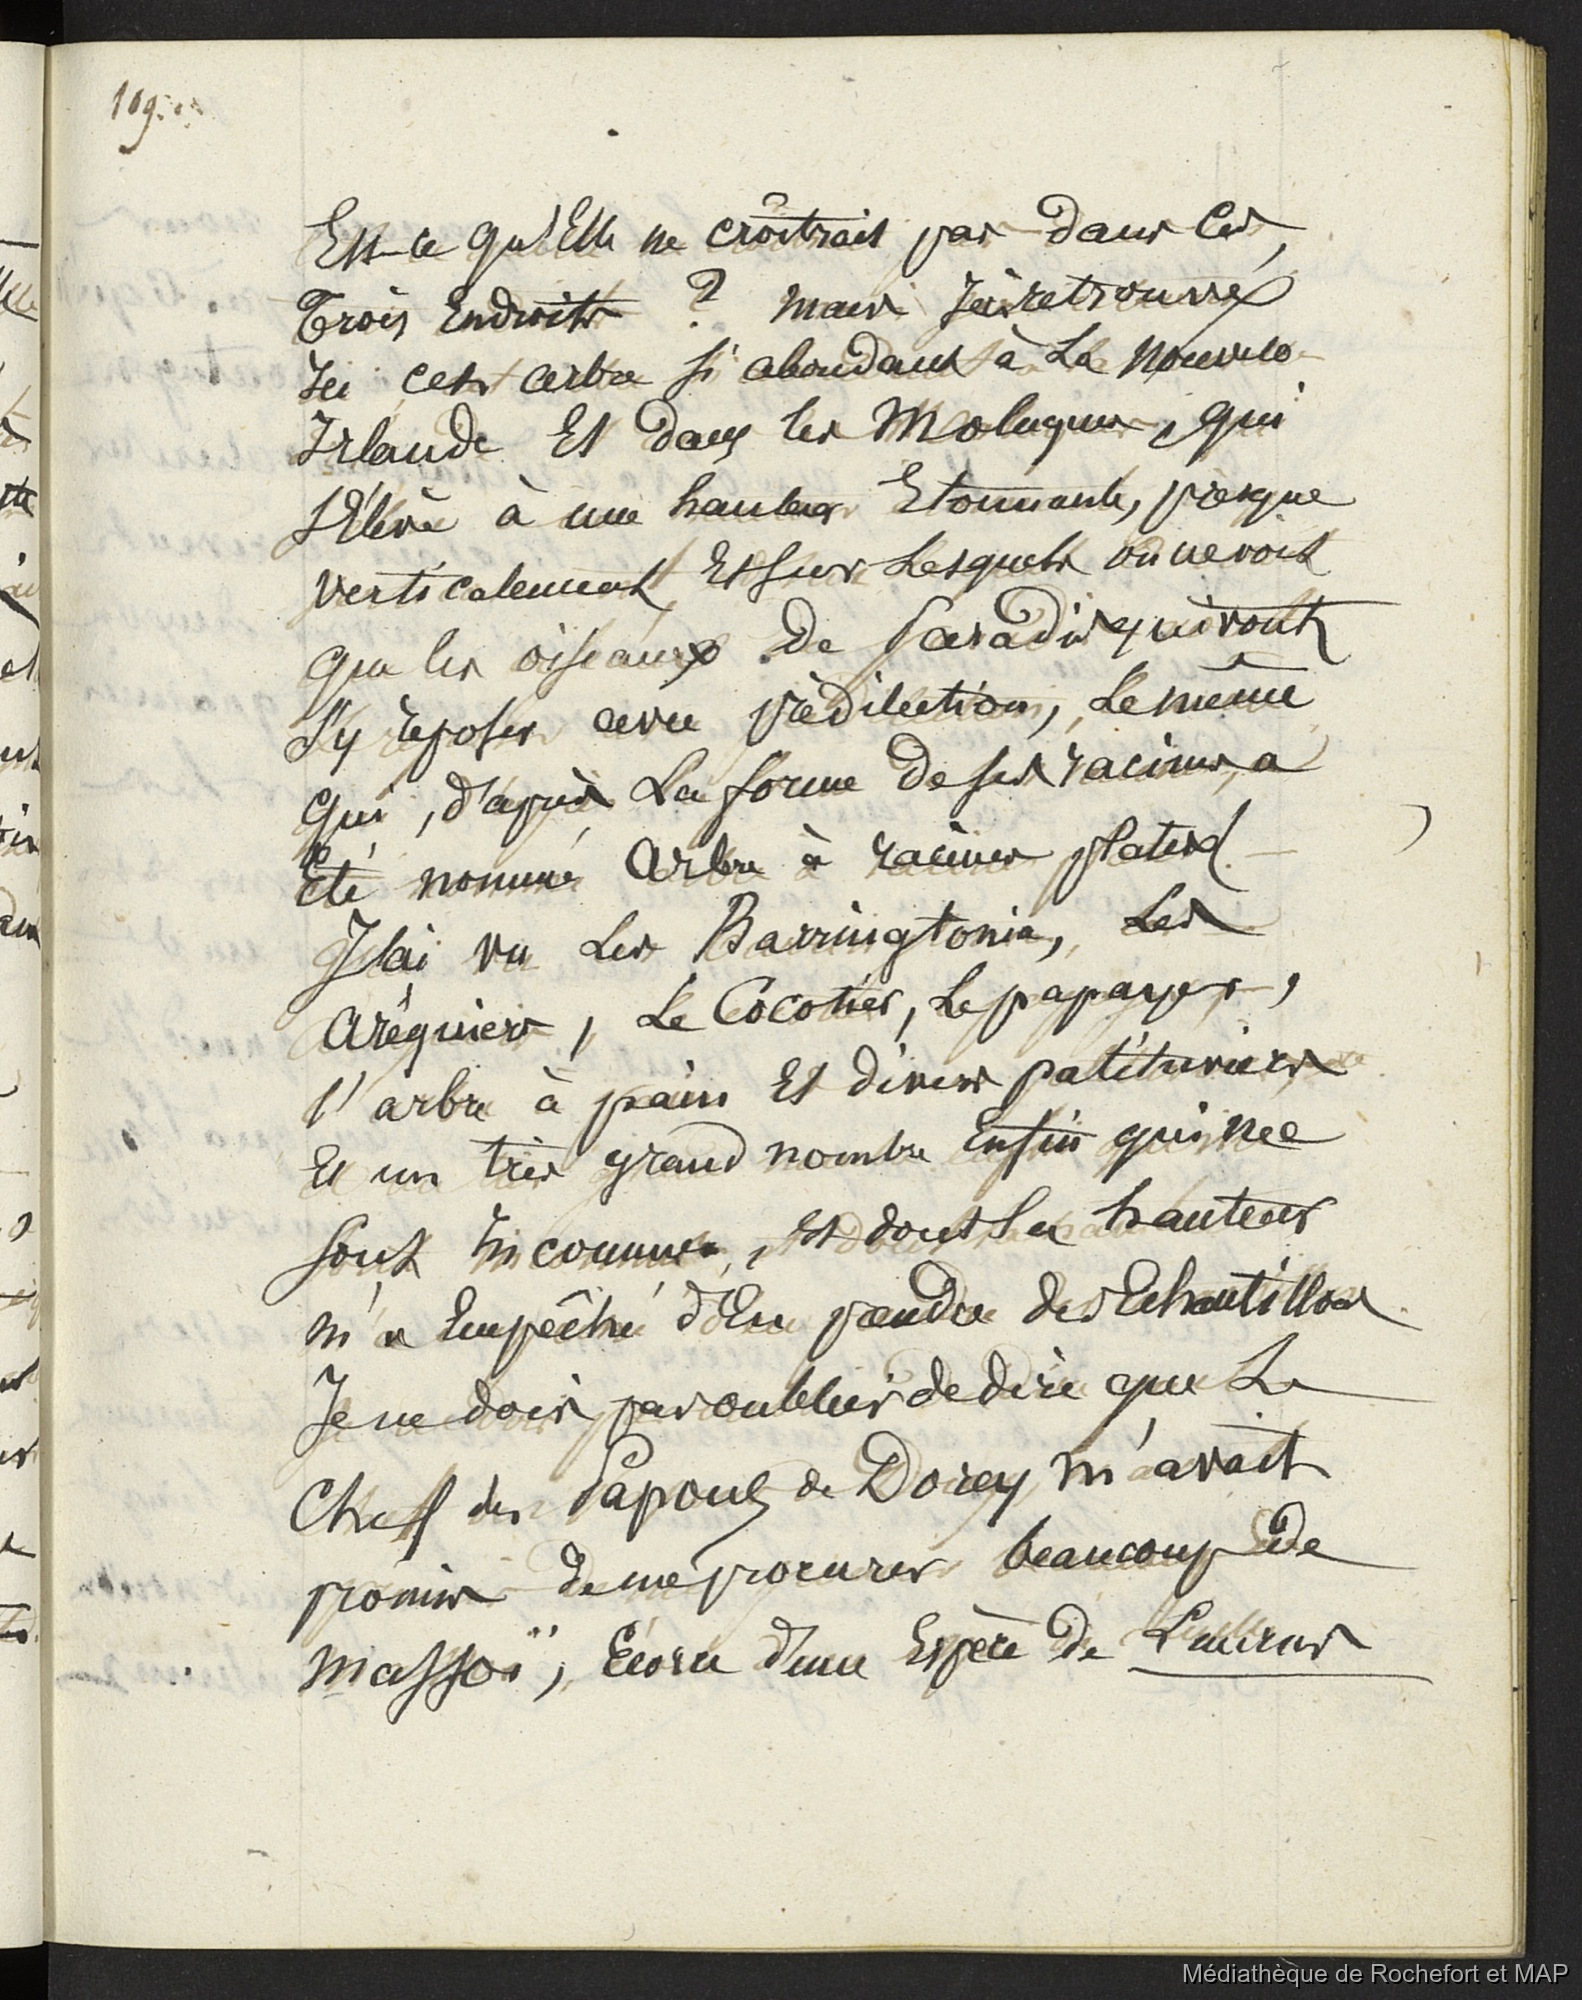 109.
Est-ce qu'Elle ne croîtrait pas dans Ces
Trois Endroits ? mais J'ai retrouvé
Ici cet arbre si abondant à La Nouvelle
Irlande Et dans les Moluques, qui
s'Elève à une hauteur Etonnante, presque
verticalement, Et sur Lesquels on ne voit
que les oiseaux de Paradis qui vont
s'y reposer avec prédilection, Le même
qui, d'après La forme de ses racines, a
Eté nommé Arbre à racines plates.
J'ai vu Les Barringtonia, Les
Aréquiers, Le Cocotier, Le papayer,
l'arbre à pain Et divers palétuviers
Et un très grand nombre Enfin qui me
sont Inconnus, Et dont La hauteur
m'a Empêché d'En prendre des Echantillons
Je ne dois pas oublier de dire que Le
Chef des Papous de Dorey m'avait
promis de me procurer beaucoup de
massoï, Ecorce d'une Espèce de Laurus
Médiathèque de Rochefort et MAP